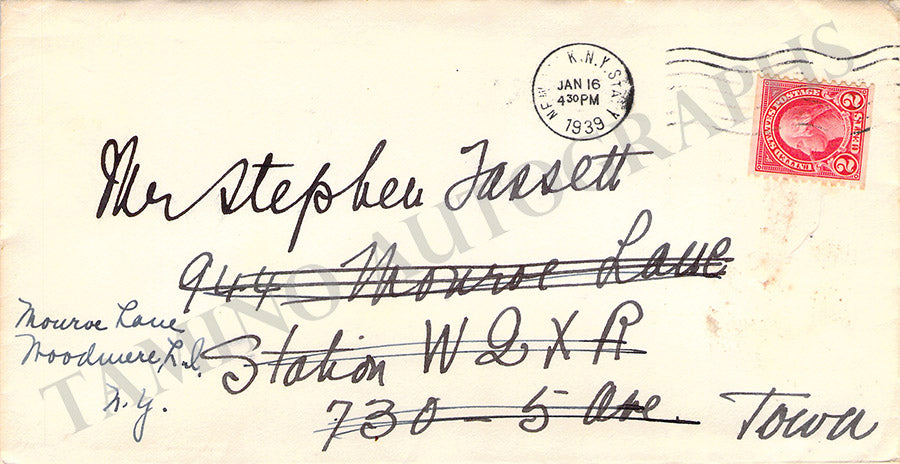 NEW K.N.Y. STA. Y
JAN 16
4 30 PM
1939
UNITED STATES POSTAGE
2 CENTS 2
Mr Stephen Fassett
944 Monroe Lane
Station W2XR
730 - 5 Ave. Town
Monroe Lane
Woodmere L.I.
N.Y.
TAMINO AUTOGRAPHS